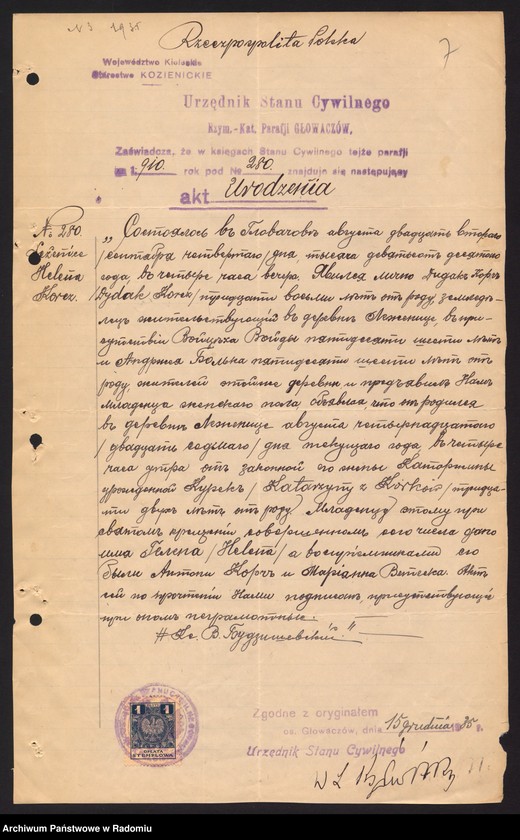 N 3 1935
Rzeczpospolita Polska
7
Województwo Kieleckie
Starostwo KOZIENICKIE
Urzędnik Stanu Cywilnego
Rzym.-Kat. Parafji GŁOWACZÓW,
Zaświadcza, że w księgach Stanu Cywilnego tejże parafji
za 1910. rok pod № 280. znajduje się następujący
akt Urodzenia
№ 280.
Helena
Korcz.
„Состоялось въ Гловачовѣ августа двадцать второго
/сентября четвертаго/ дня тысяча девятсотъ десятаго
года, въ четыре часа вечера. Явился лично Дидакъ Корчъ
/Dydak Korcz/, тридцати восьми лѣтъ отъ роду, земледѣ-
лецъ жительствующій въ деревнѣ Леженице, въ при-
сутствіи Войцѣха Войды пятидесяти шести лѣтъ
и Андрея Болька пятидесяти шести лѣтъ отъ
роду, жителей этойже деревни и предъявилъ Намъ
младенца женскаго пола, объявляя, что онъ родился
въ деревни Леженице августа четырнадцатого
/двадцать седьмаго/ дня текущаго года, въ четыре
часа утра отъ законной его жены Катаржины
урожденной Курекъ /Katarzyny z Kórków/, тридца-
ти двухъ лѣтъ отъ роду. Младенцу этому при
святомъ крещеніи совершонномъ сего числа дано
имя Гелена /Helena/, а воспріемниками его
были Антони Корчъ и Маріанна Витеска. Актъ
сей по прочтеніи Нами подписанъ, присутствующіе
при ономъ неграмотные.
Кс. В. Будзишевскій."
1 1
OPŁATA
STEMPLOWA
Zgodne z oryginałem
os. Głowaczów, dnia 15 grudnia 1935 r.
Urzędnik Stanu Cywilnego
Archiwum Państwowe w Radomiu